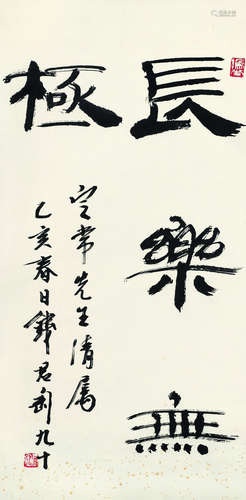 長樂無
極
定常先生清属
乙亥春日錢君匋九十